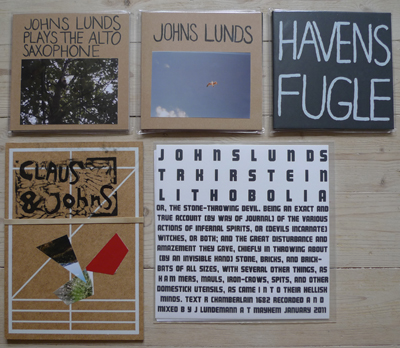 JOHNS LUNDS
PLAYS THE ALTO
SAXOPHONE
JOHNS LUNDS
HAVENS
FUGLE
CLAUS
& JOHNS
JOHNSLUNDS
TRKIRSTEIN
LITHOBOLIA
OR, THE STONE-THROWING DEVIL. BEING AN EXACT AND
TRUE ACCOUNT (BY WAY OF JOURNAL) OF THE VARIOUS
ACTIONS OF INFERNAL SPIRITS, OR (DEVILS INCARNATE)
WITCHES, OR BOTH; AND THE GREAT DISTURBANCE AND
AMAZEMENT THEY GAVE, CHIEFLY IN THROWING ABOUT
(BY AN INVISIBLE HAND) STONE, BRICKS, AND BRICK-
BATS OF ALL SIZES, WITH SEVERAL OTHER THINGS, AS
HAMMERS, MAULS, IRON-CROWS, SPITS, AND OTHER
DOMESTICK UTENSILS, AS CAME INTO THEIR HELLISH
MINDS. TEXT R CHAMBERLAIN 1682 RECORDED AND
MIXED BY J LUNDEMANN AT MAYHEM JANUARY 2011